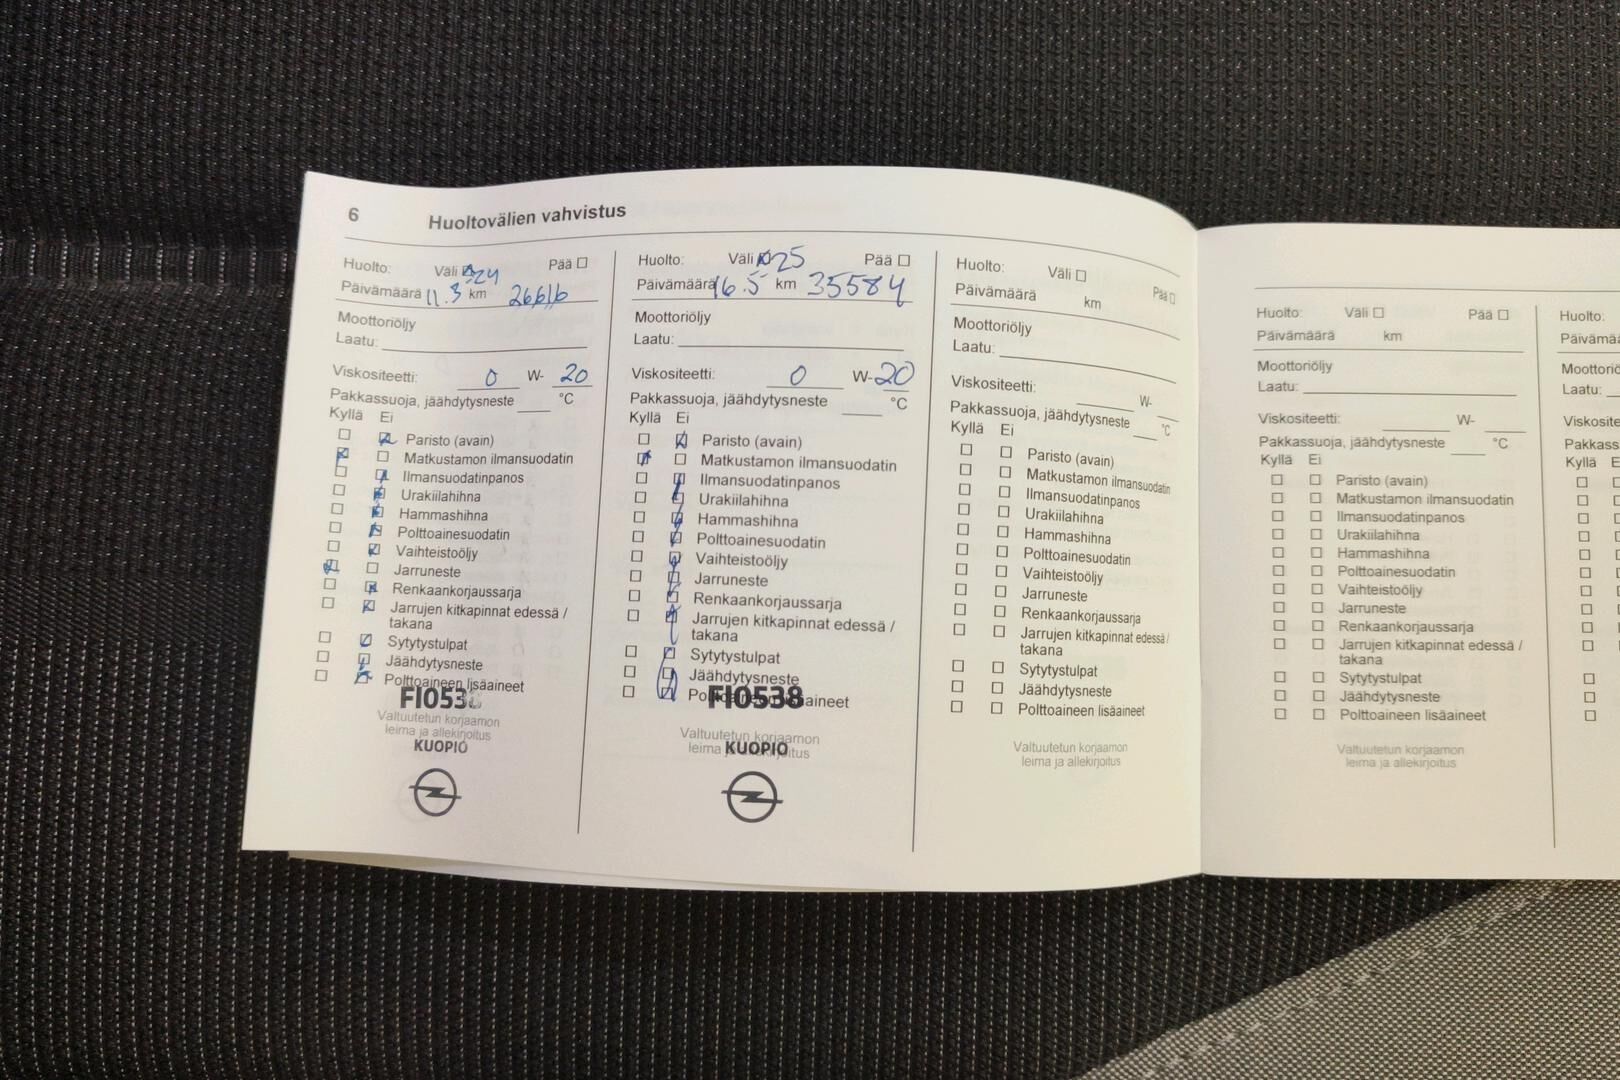 6 Huoltovälien vahvistus
Huolto: Väli ☒ 24 Pää ☐
Päivämäärä 11.3 km 26616
Moottoriöljy
Laatu:
Viskositeetti: 0 W- 20
Pakkassuoja, jäähdytysneste °C
Kyllä Ei
Paristo (avain)
Matkustamon ilmansuodatin
Ilmansuodatinpanos
Urakiilahihna
Hammashihna
Polttoainesuodatin
Vaihteistoöljy
Jarruneste
Renkaankorjaussarja
Jarrujen kitkapinnat edessä /
takana
Sytytystulpat
Jäähdytysneste
Polttoaineen lisäaineet
FI0538
Valtuutetun korjaamon
leima ja allekirjoitus
KUOPIO
Huolto: Väli ☒ 25 Pää ☐
Päivämäärä 16.5 km 35584
Moottoriöljy
Laatu:
Viskositeetti: 0 W-20
Pakkassuoja, jäähdytysneste °C
Kyllä Ei
Paristo (avain)
Matkustamon ilmansuodatin
Ilmansuodatinpanos
Urakiilahihna
Hammashihna
Polttoainesuodatin
Vaihteistoöljy
Jarruneste
Renkaankorjaussarja
Jarrujen kitkapinnat edessä /
takana
Sytytystulpat
Jäähdytysneste
Polttoaineen lisäaineet
FI0538
Valtuutetun korjaamon
leima ja allekirjoitus
KUOPIO
Huolto: Väli ☐ Pää ☐
Päivämäärä km
Moottoriöljy
Laatu:
Viskositeetti: W-
Pakkassuoja, jäähdytysneste °C
Kyllä Ei
Paristo (avain)
Matkustamon ilmansuodatin
Ilmansuodatinpanos
Urakiilahihna
Hammashihna
Polttoainesuodatin
Vaihteistoöljy
Jarruneste
Renkaankorjaussarja
Jarrujen kitkapinnat edessä /
takana
Sytytystulpat
Jäähdytysneste
Polttoaineen lisäaineet
Valtuutetun korjaamon
leima ja allekirjoitus
Huolto: Väli ☐ Pää ☐
Päivämäärä km
Moottoriöljy
Laatu:
Viskositeetti: W-
Pakkassuoja, jäähdytysneste °C
Kyllä Ei
Paristo (avain)
Matkustamon ilmansuodatin
Ilmansuodatinpanos
Urakiilahihna
Hammashihna
Polttoainesuodatin
Vaihteistoöljy
Jarruneste
Renkaankorjaussarja
Jarrujen kitkapinnat edessä /
takana
Sytytystulpat
Jäähdytysneste
Polttoaineen lisäaineet
Valtuutetun korjaamon
leima ja allekirjoitus
Huolto:
Päivämää
Moottoriö
Laatu:
Viskosite
Pakkass
Kyllä E